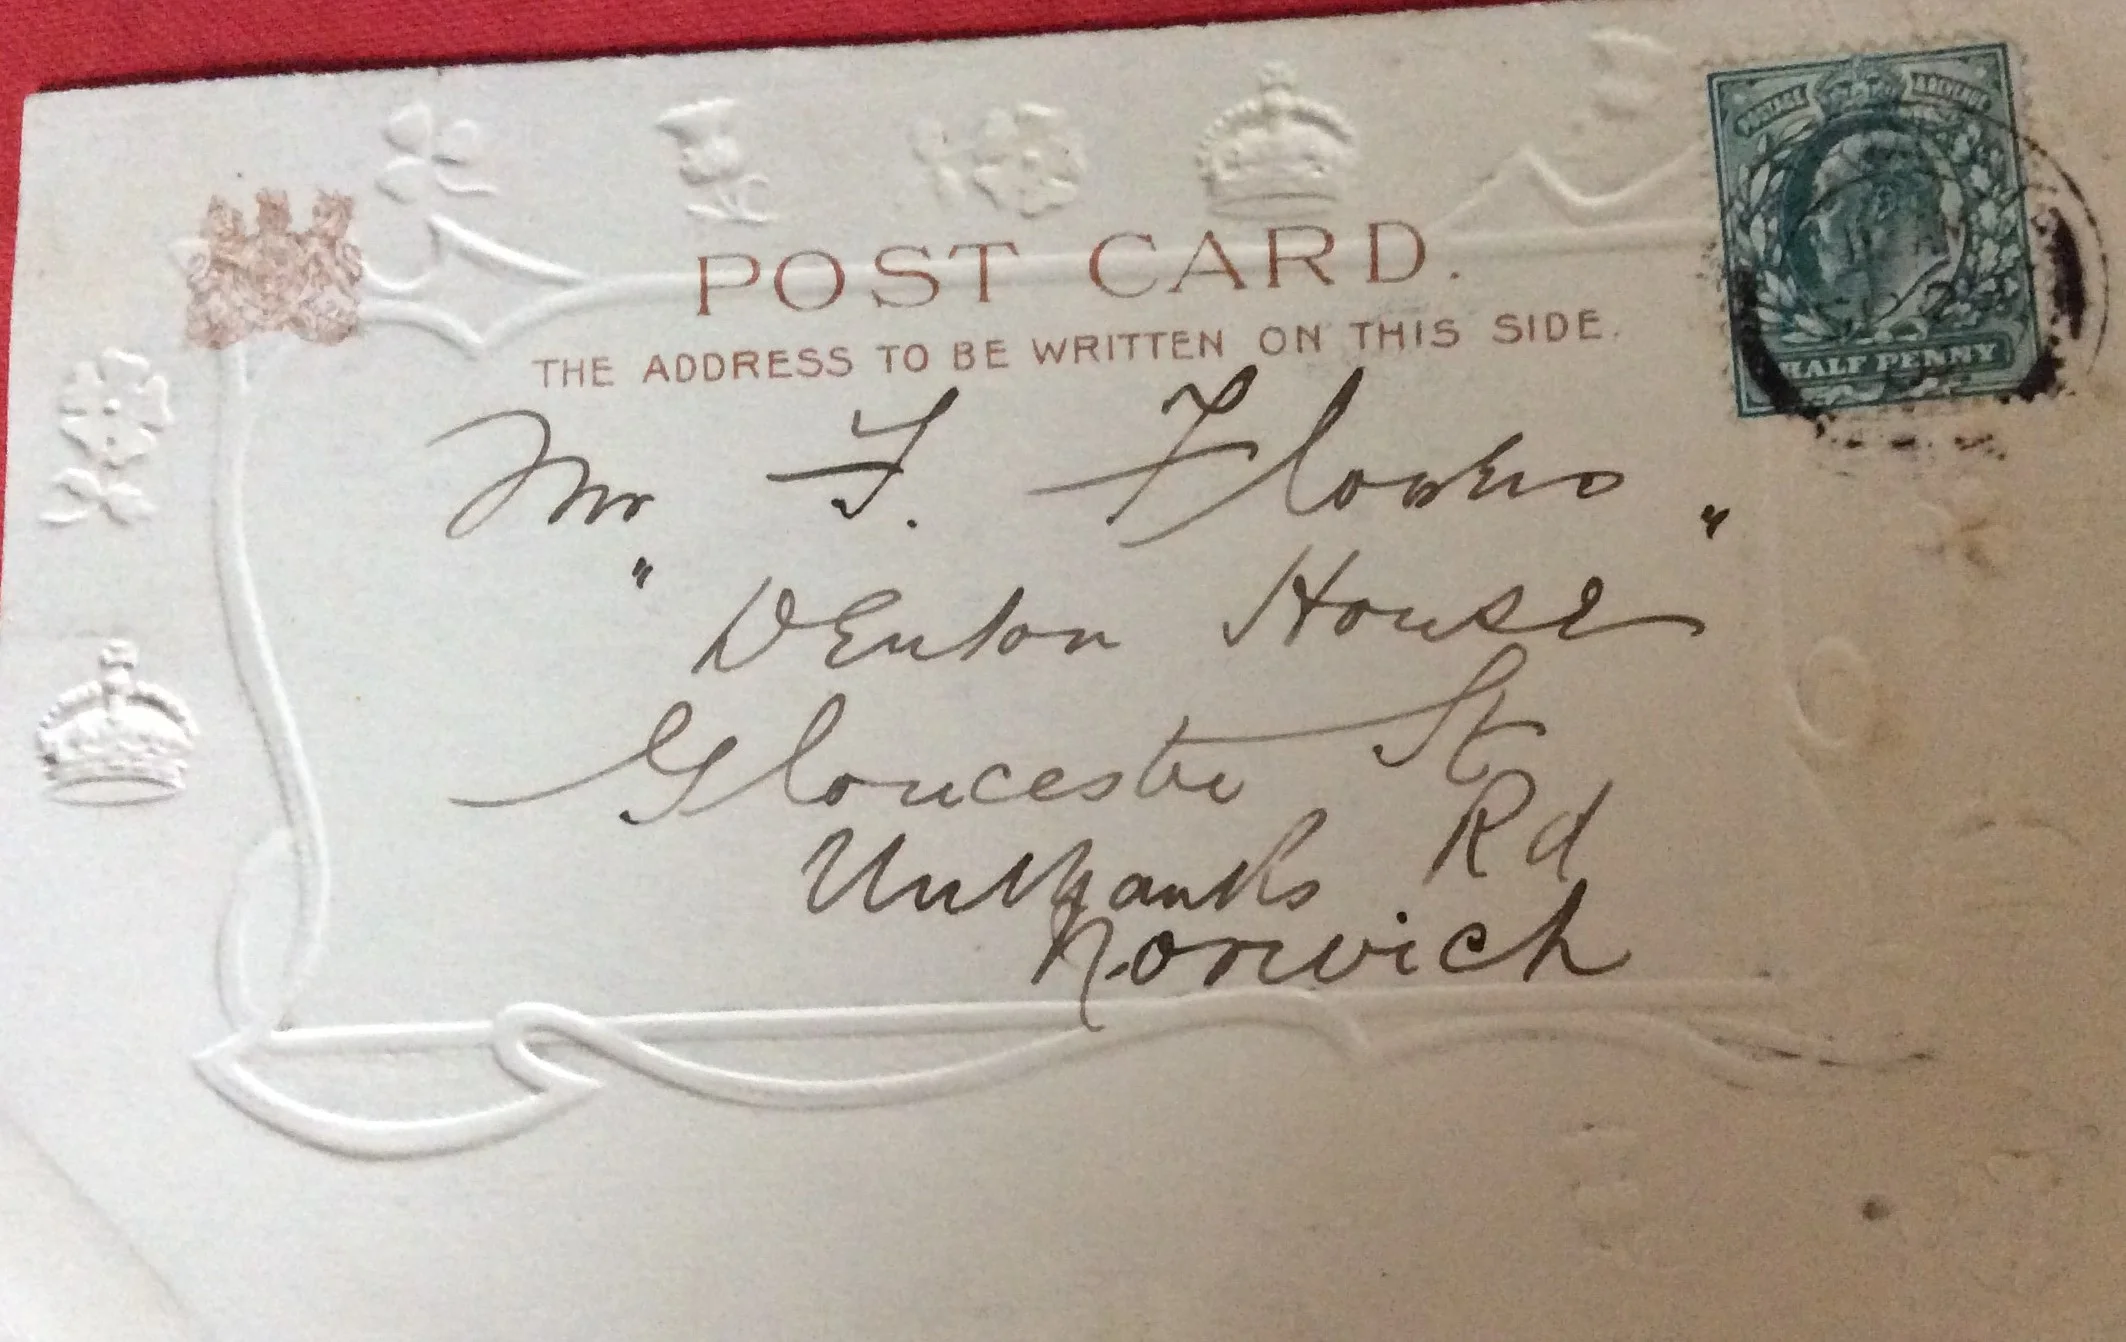 POST CARD.
THE ADDRESS TO BE WRITTEN ON THIS SIDE.
POSTAGE REVENUE
HALF PENNY
Mr F. Flowers
" Denton House "
Gloucester St
Unthanks Rd
Norwich